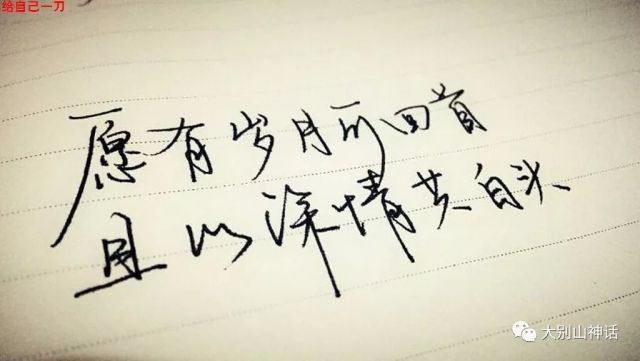 给自己一刀
愿有岁月可回首
且以深情共白头
大别山神话